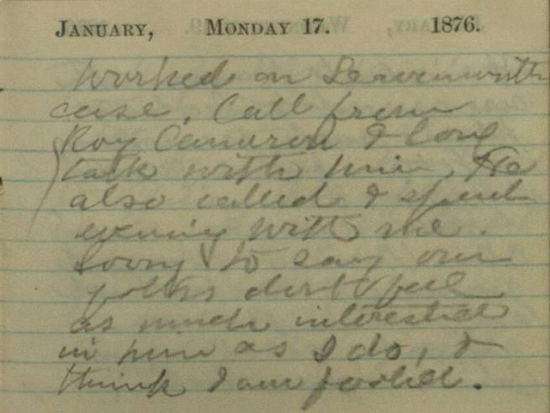 JANUARY, MONDAY 17. 1876.
Worked on Leavenworth
case. Call from
Roy Cameron & long
talk with him. He
also called & spent
evening with me.
Sorry to say our
folks dont feel
as much interested
in him as I do, &
think I am fooled.